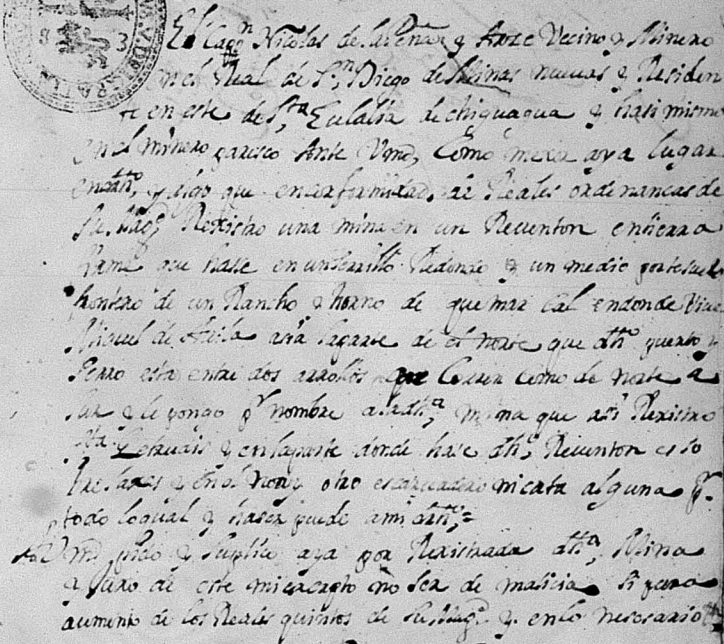 El Capn Nicolas de la Peña y Arze Vecino y Minero
en el Real de Sn Diego de Minas nuevas y Residen
te en este de Sta Eulalia de chiguagua y hasi mismo
en el minero paresco Ante Vmd, Como mexor aya lugar
en dro, y digo que en conformidad, de Reales ordenancas de
Su Magd Rexistro una mina en un Reventon en tierra
que hase en un serrillo Redondo y un medio
frontero de un Rancho y horno de quemar Cal en donde Vive
Miguel de Avila a la parte de el norte que dho puerto y
Serro esta entre dos arrollos que Corren como de norte a
Sur y le pongo pr nombre a la dha, mina que asi Rexistro
Sta y en la parte donde hase dho, Reventon es so
bre y en el no ay otro ni cata alguna pr
todo lo qual y haser puede a mi dro,=
A Vmd pido y Suplico aya por Rexistrada dha, Mina
y juro de este mi escripto no ser de malicia Si para
aumento de los Reales quintos de Su Magd y en lo nesesario